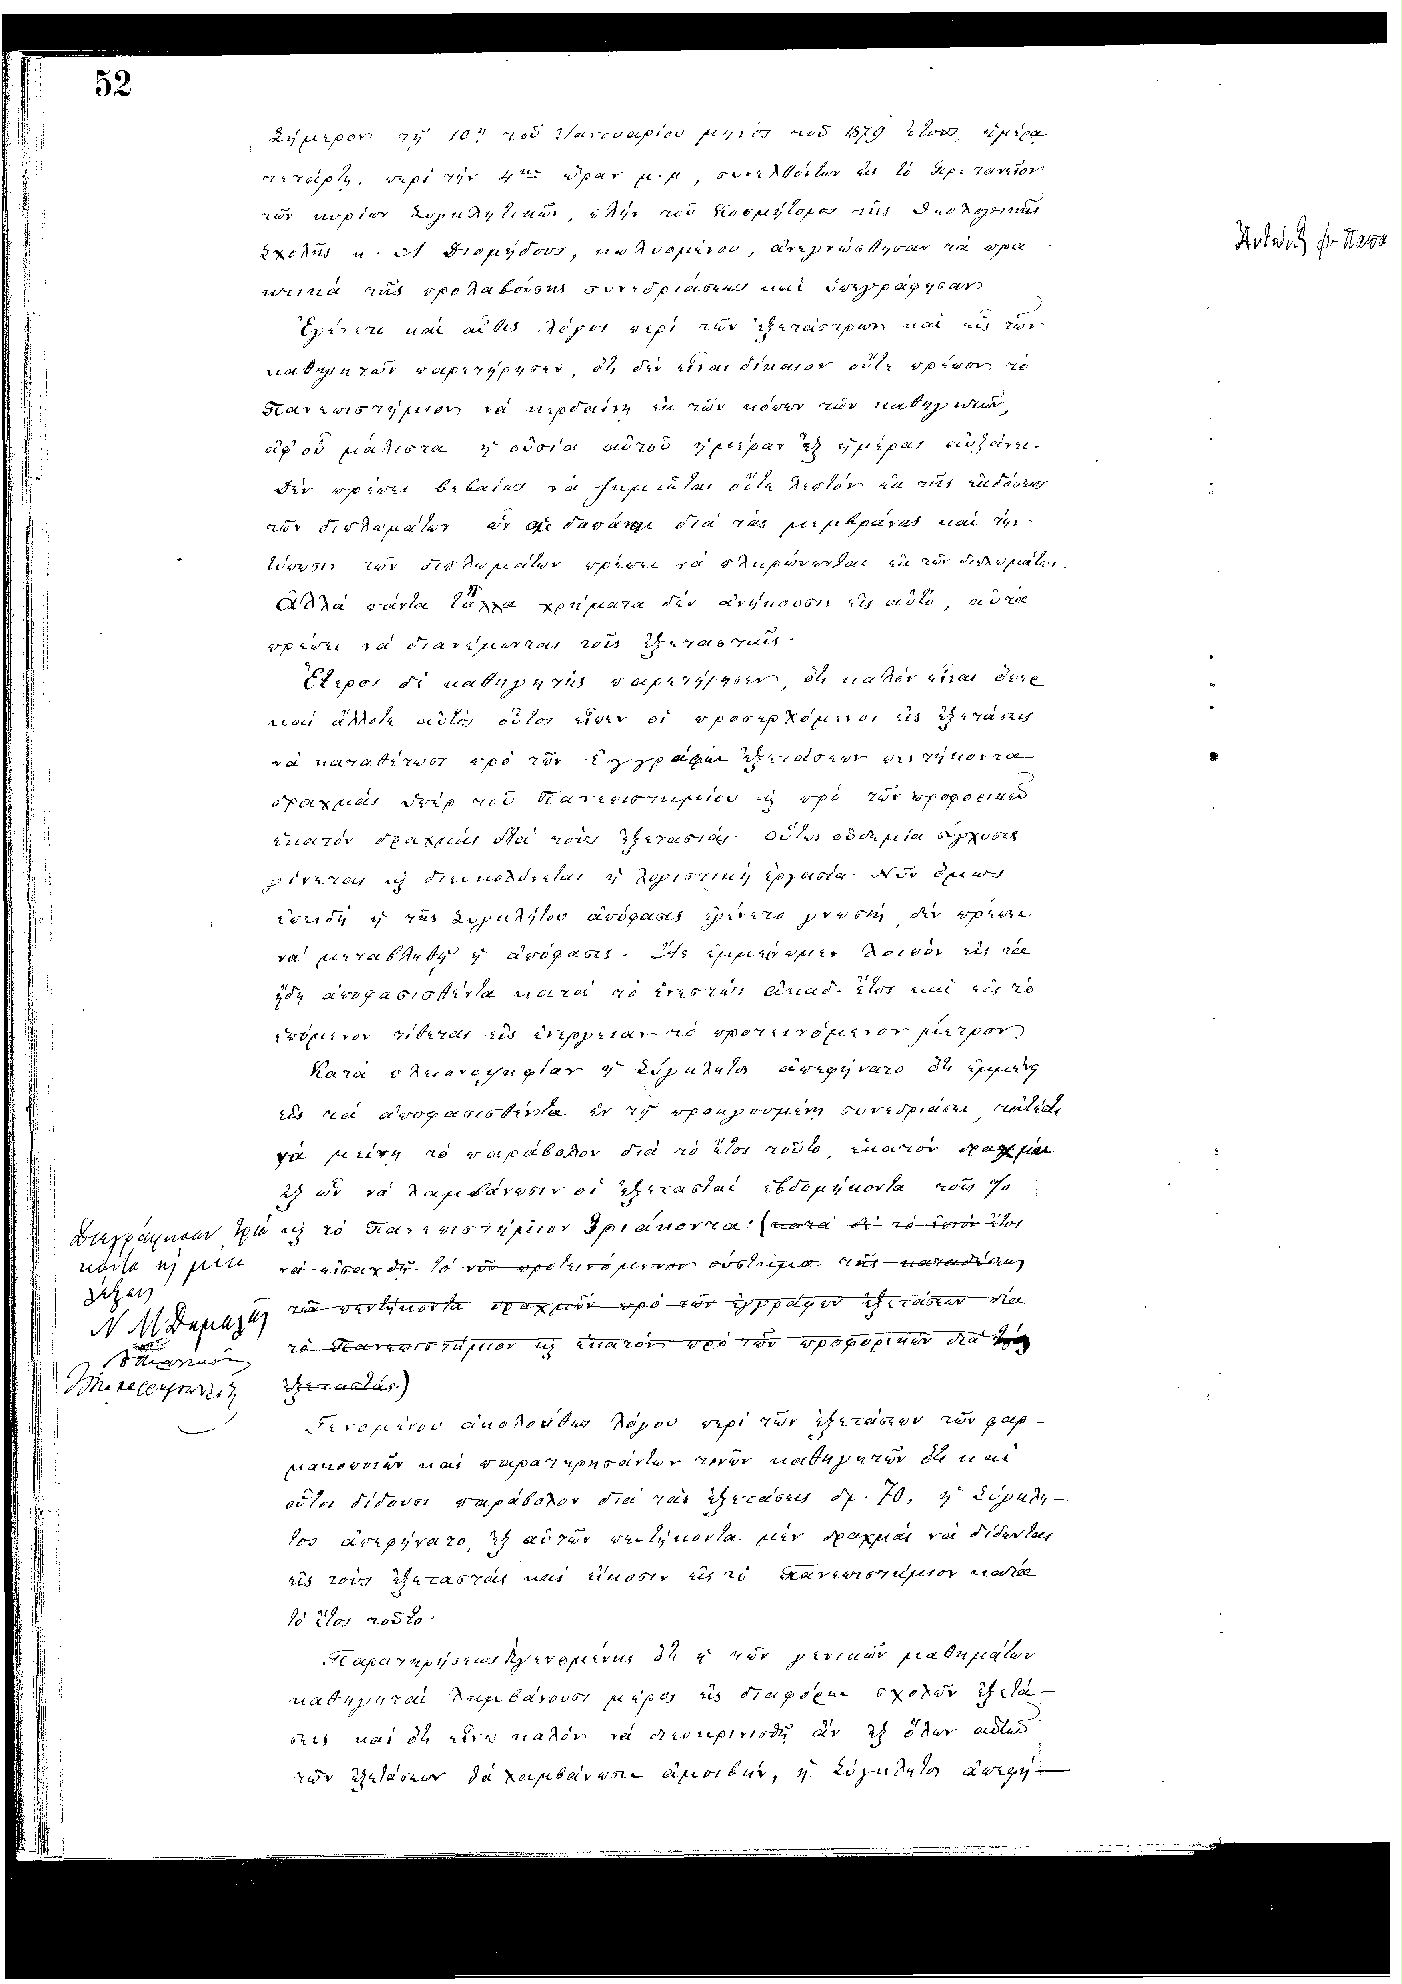 52
Σήμερον τῇ 10ῃ τοῦ Ἰανουαρίου μηνὸς τοῦ 1879 ἔτους, ἡμέρᾳ
τετάρτῃ, περὶ τὴν 4ην ὥραν μ.μ, συνελθόντων εἰς τὸ Πρυτανεῖον
τῶν κυρίων Συγκλητικῶν, πλὴν τοῦ Κοσμήτορος τῆς Θεολογικῆς
Σχολῆς κ. Α Διομήδους, κωλυομένου, ἀνεγνώσθησαν τὰ πρα
κτικὰ τῆς προλαβούσης συνεδριάσεως καὶ ὑπεγράφησαν
Ἐγένετο καὶ αὖθις λόγος περὶ τῶν ἐξετάστρων καὶ εἷς τῶν
καθηγητῶν παρετήρησεν, ὅτι δὲν εἶναι δίκαιον οὔτε πρέπον τὸ
Πανεπιστήμιον νὰ κερδαίνῃ ἐκ τῶν κόπων τῶν καθηγητῶν,
ἀφ' οὗ μάλιστα ἡ οὐσία αὐτοῦ ἡμέραν ἐξ ἡμέρας αὐξάνει.
Δὲν πρέπει βεβαίως νὰ ζημιῶται οὔτε λεπτὸν ἐκ τῆς ἐκδόσεως
τῶν διπλωμάτων ὧν αἱ δαπάναι διὰ τὰς μεμβράνας καὶ τὴν
τύπωσιν τῶν διπλωμάτων πρέπει νὰ πληρώνωνται ἐκ τῶν διπλωμάτων.
Ἀλλὰ πάντα τἄλλα χρήματα δὲν ἀνήκουσιν εἰς αὐτό, αὐτὰ
πρέπει νὰ διανέμωνται τοῖς ἐξετασταῖς.
Ἕτερος δὲ καθηγητὴς παρετήρησεν, ὅτι καλὸν εἶναι ὅπερ
καὶ ἄλλοτε αὐτὸς οὗτος εἶπεν οἱ προσερχόμενοι εἰς ἐξετάσεις
νὰ καταθέτωσι πρὸ τῶν ἐγγράφων ἐξετάσεων πεντήκοντα
δραχμὰς ὑπὲρ τοῦ Πανεπιστημίου καὶ πρὸ τῶν προφορικῶν
ἑκατὸν δραχμὰς διὰ τοὺς ἐξεταστάς. Οὕτως οὐδεμία σύγχυσις
γίνεται καὶ διευκολύνεται ἡ λογιστικὴ ἐργασία. Νῦν ὅμως
ἐπειδὴ ἡ τῆς Συγκλήτου ἀπόφασις ἐγένετο γνωστή, δὲν πρέπει
νὰ μεταβληθῇ ἡ ἀπόφασις. Ἂς ἐμμείνωμεν λοιπὸν εἰς τὰ
ἤδη ἀποφασισθέντα κατὰ τὸ ἐνεστὼς ἀκαδ. ἔτος καὶ εἰς τὸ
ἑπόμενον τίθεται εἰς ἐνέργειαν τὸ προτεινόμενον μέτρον
Κατὰ πλειονοψηφίαν ἡ Σύγκλητος ἀπεφήνατο ὅτι ἐμμένει
εἰς τὰ ἀποφασισθέντα ἐν τῇ προηγουμένῃ συνεδριάσει, τοὐτέστι
νὰ μείνῃ τὸ παράβολον διὰ τὸ ἔτος τοῦτο, ἑκατὸν δραχμαί
ἐξ ὧν νὰ λαμβάνωσιν οἱ ἐξετασταὶ ἑβδομήκοντα τοῖς %
καὶ τὸ Πανεπιστήμιον τριάκοντα (κατὰ δὲ τὸ ἑπόν ἔτος
νὰ εἰσαχθῇ τὸ νῦν προτεινόμενον σύστημα τῆς καταθέσεως
τῶν πεντήκοντα δραχμῶν πρὸ τῶν ἐγγράφων ἐξετάσεων διὰ
τὸ Πανεπιστήμιον καὶ ἑκατὸν πρὸ τῶν προφορικῶν διὰ τοὺς
ἐξεταστάς)
Διεγράφησαν τριά
κοντα καὶ μία
λέξεις
Ν Μ Δαμαλᾶς
Γενομένου ἀκολούθως λόγου περὶ τῶν ἐξετάσεων τῶν φαρ-
μακοποιῶν καὶ παρατηρησάντων τινῶν καθηγητῶν ὅτι καὶ
οὗτοι δίδουσι παράβολον διὰ τὰς ἐξετάσεις δρ. 70, ἡ Σύγκλη-
τος ἀπεφήνατο, ἐξ αὐτῶν πεντήκοντα μὲν δραχμὰς νὰ δίδωνται
εἰς τοὺς ἐξεταστὰς καὶ εἴκοσιν εἰς τὸ Πανεπιστήμιον κατὰ
τὸ ἔτος τοῦτο.
Παρατηρήσεως γενομένης ὅτι οἱ τῶν γενικῶν μαθημάτων
καθηγηταὶ λαμβάνουσι μέρος εἰς διαφόρων σχολῶν ἐξετά-
σεις καὶ ὅτι εἶναι καλὸν νὰ διευκρινισθῇ ἂν ἐξ ὅλων αὐτῶν
τῶν ἐξετάσεων θὰ λαμβάνωσιν ἀμοιβήν, ἡ Σύγκλητος ἀπεφή-